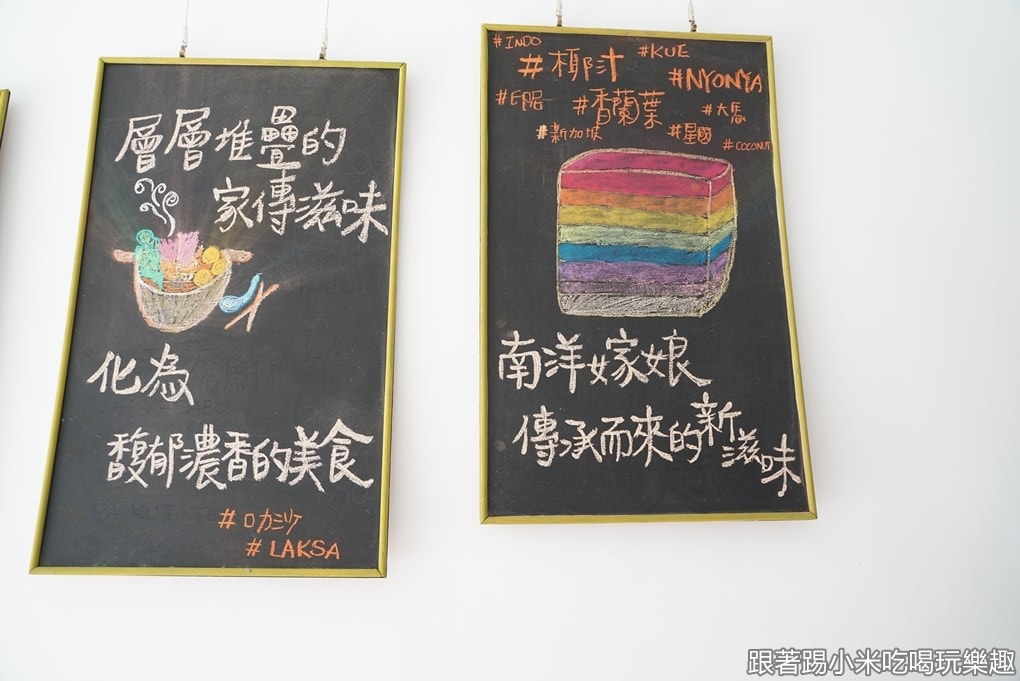 層層堆疊的
家傳滋味
化為
馥郁濃香的美食
#叻沙
#LAKSA
#INDO
#椰汁
#KUE
#NYONYA
#印尼
#香蘭葉
#大馬
#新加坡
#星國
#COCONUT
南洋嫁娘
傳承而來的新滋味
跟著踢小米吃喝玩樂趣